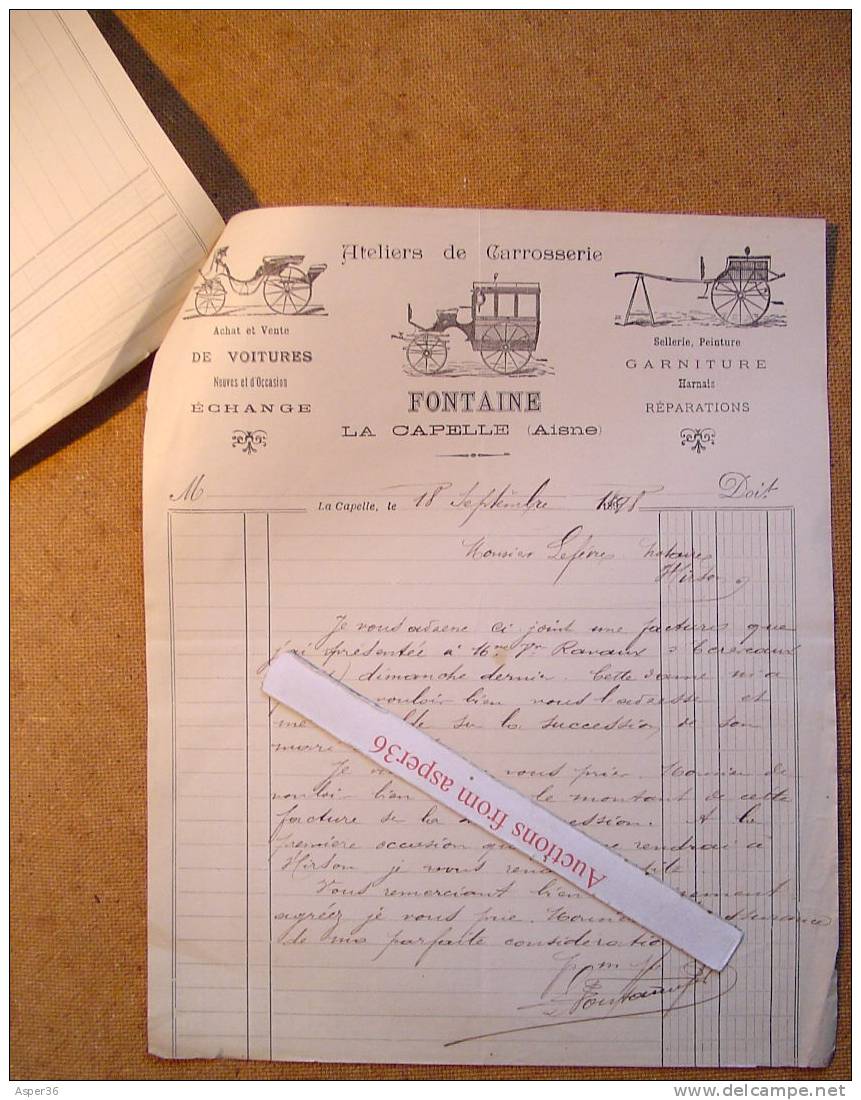 Ateliers de Carrosserie
Achat et Vente
DE VOITURES
Neuves et d'Occasion
ÉCHANGE
FONTAINE
LA CAPELLE (Aisne)
Sellerie, Peinture
GARNITURE
Harnais
RÉPARATIONS
M
Doit
La Capelle, le 18 Septembre 1898
Monsieur Lefèvre notaire
Hirson
Je vous adresse ci joint une facture que
j'ai présentée à Ravaux
dimanche dernier. Cette dame m'a
vouloir bien vous l'adresser et
me sur la succession de son
mari
Je vous prier Monsieur de
vouloir bien le montant de cette
facture sur la succession. A la
première occasion que rendrai à
Hirson je vous
Vous remerciant bien
agréez je vous prie Monsieur
de ma parfaite considération
Fontaine
Auctions from asper36
Asper36
www.delcampe.net